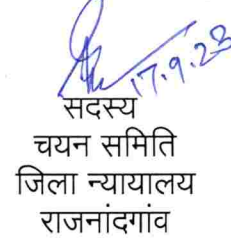 17.9.23
सदस्य
चयन समिति
जिला न्यायालय
राजनांदगांव